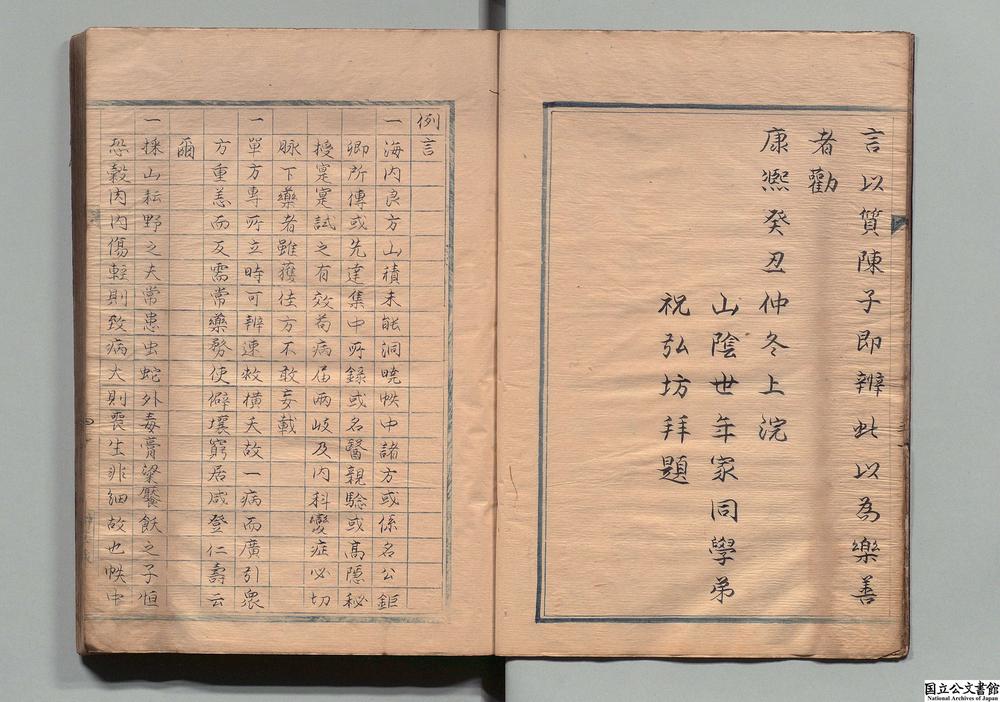 言以質陳子即辨此以為樂善
者勸
康熈癸丑仲冬上浣
山陰世年家同學弟
祝弘坊拜題
例言
一海内良方山積未能洞曉帙中諸方或係名公鉅
卿所傳或先達集中所録或名醫親騐或高隠秘
授寔寔試之有效茍病届兩岐及内科變症必切
脉下藥者雖獲佳方不敢妄載
一單方專所立時可辨速救横夭故一病而廣引衆
方重恙而反需常藥務使僻壤窮居咸登仁壽云
爾
一採山耘野之夫常患虫蛇外毒膏粱饜飫之子恒
恐穀肉内傷輕則致病大則喪生非細故也帙中
国立公文書館
National Archives of Japan